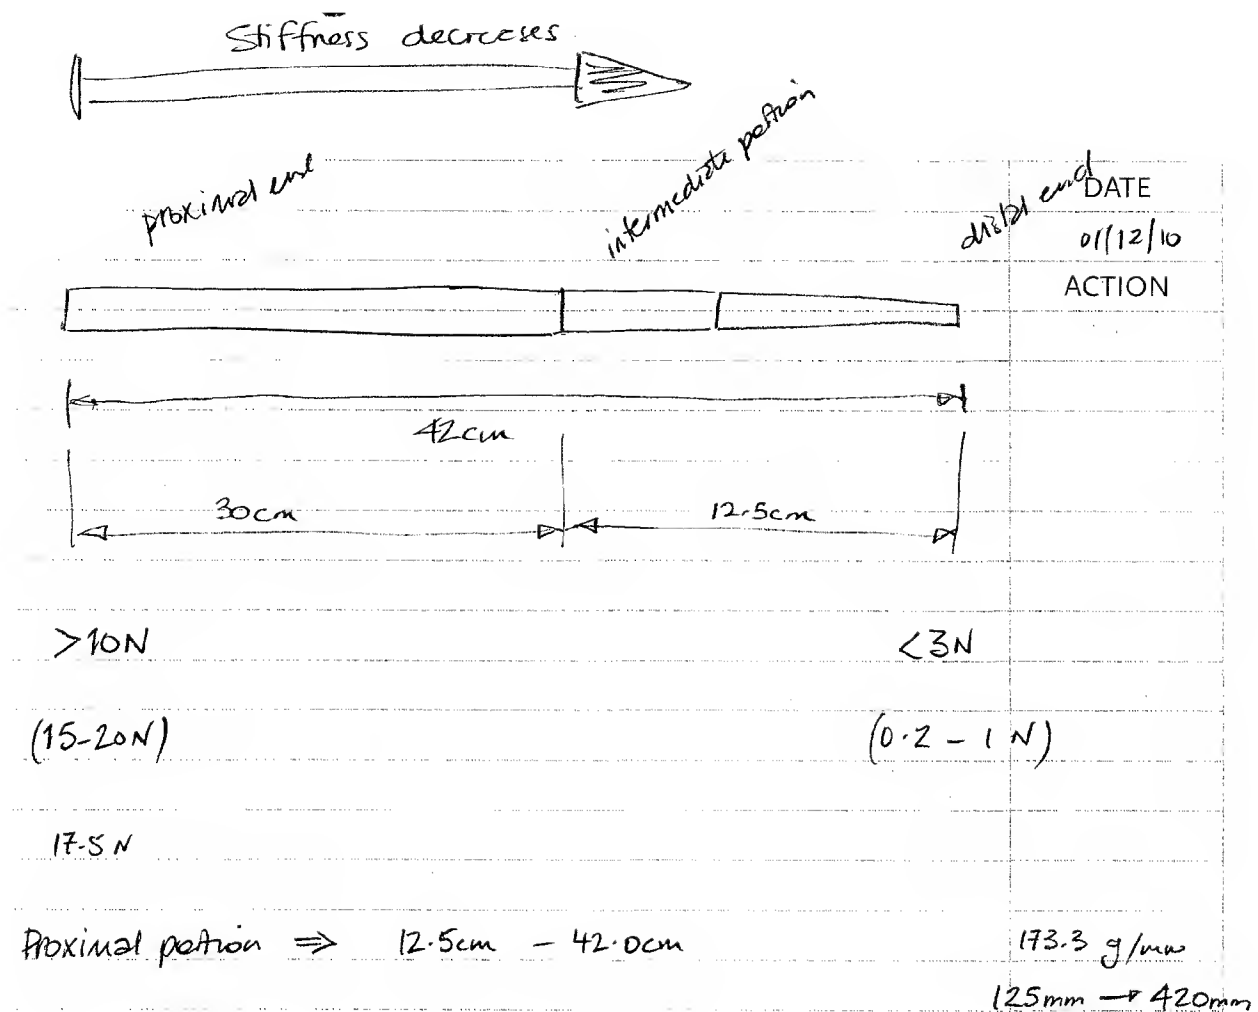 Stiffness decreases
proximal end
intermediate portion
distal end
DATE
01/12/10
ACTION
42cm
30cm
12.5cm
>10N
<3N
(15-20N)
(0.2 - 1 N)
17.5 N
Proximal portion ⇒ 12.5cm - 42.0cm
173.3 g/mm
125mm → 420mm